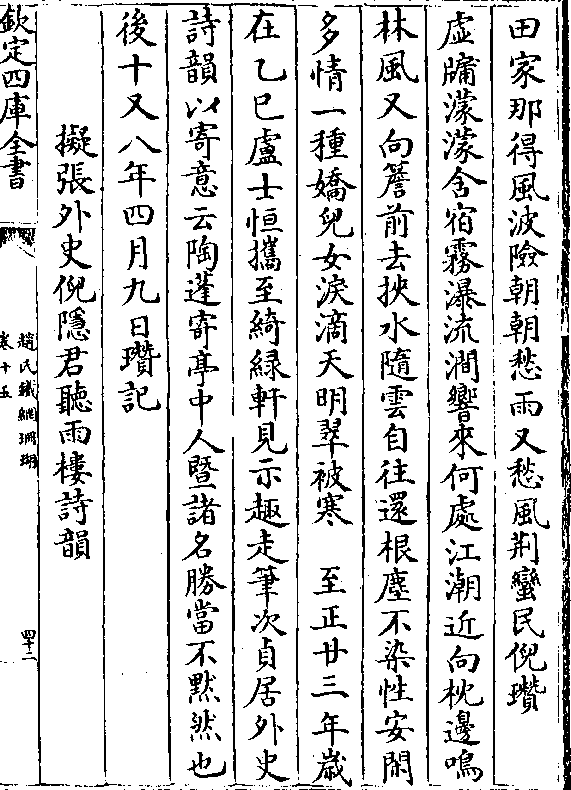 田家那得風波險朝朝愁雨又愁風荆蠻民倪瓚
虚牖濛濛含宿霧瀑流澗響來何處江潮近向枕邊鳴
林風又向簷前去挾水隨雲自往還根塵不染性安閒
多情一種嬌兒女淚滴天明翠被寒　至正廿三年歲
在乙巳盧士恒攜至綺緑軒見示趣走筆次貞居外史
詩韻以寄意云陶蓬寄亭中人暨諸名勝當不默然也
後十又八年四月九日瓚記
擬張外史倪隱君聽雨樓詩韻
欽定四庫全書
趙氏鐵網珊瑚
卷十五
四十二